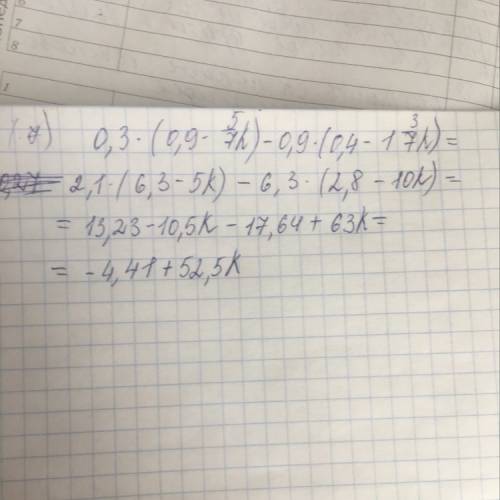 7) 0,3·(0,9 - 5/7k) - 0,9·(0,4 - 1 3/7k) =
2,1·(6,3 - 5k) - 6,3·(2,8 - 10k) =
= 13,23 - 10,5k - 17,64 + 63k =
= -4,41 + 52,5k